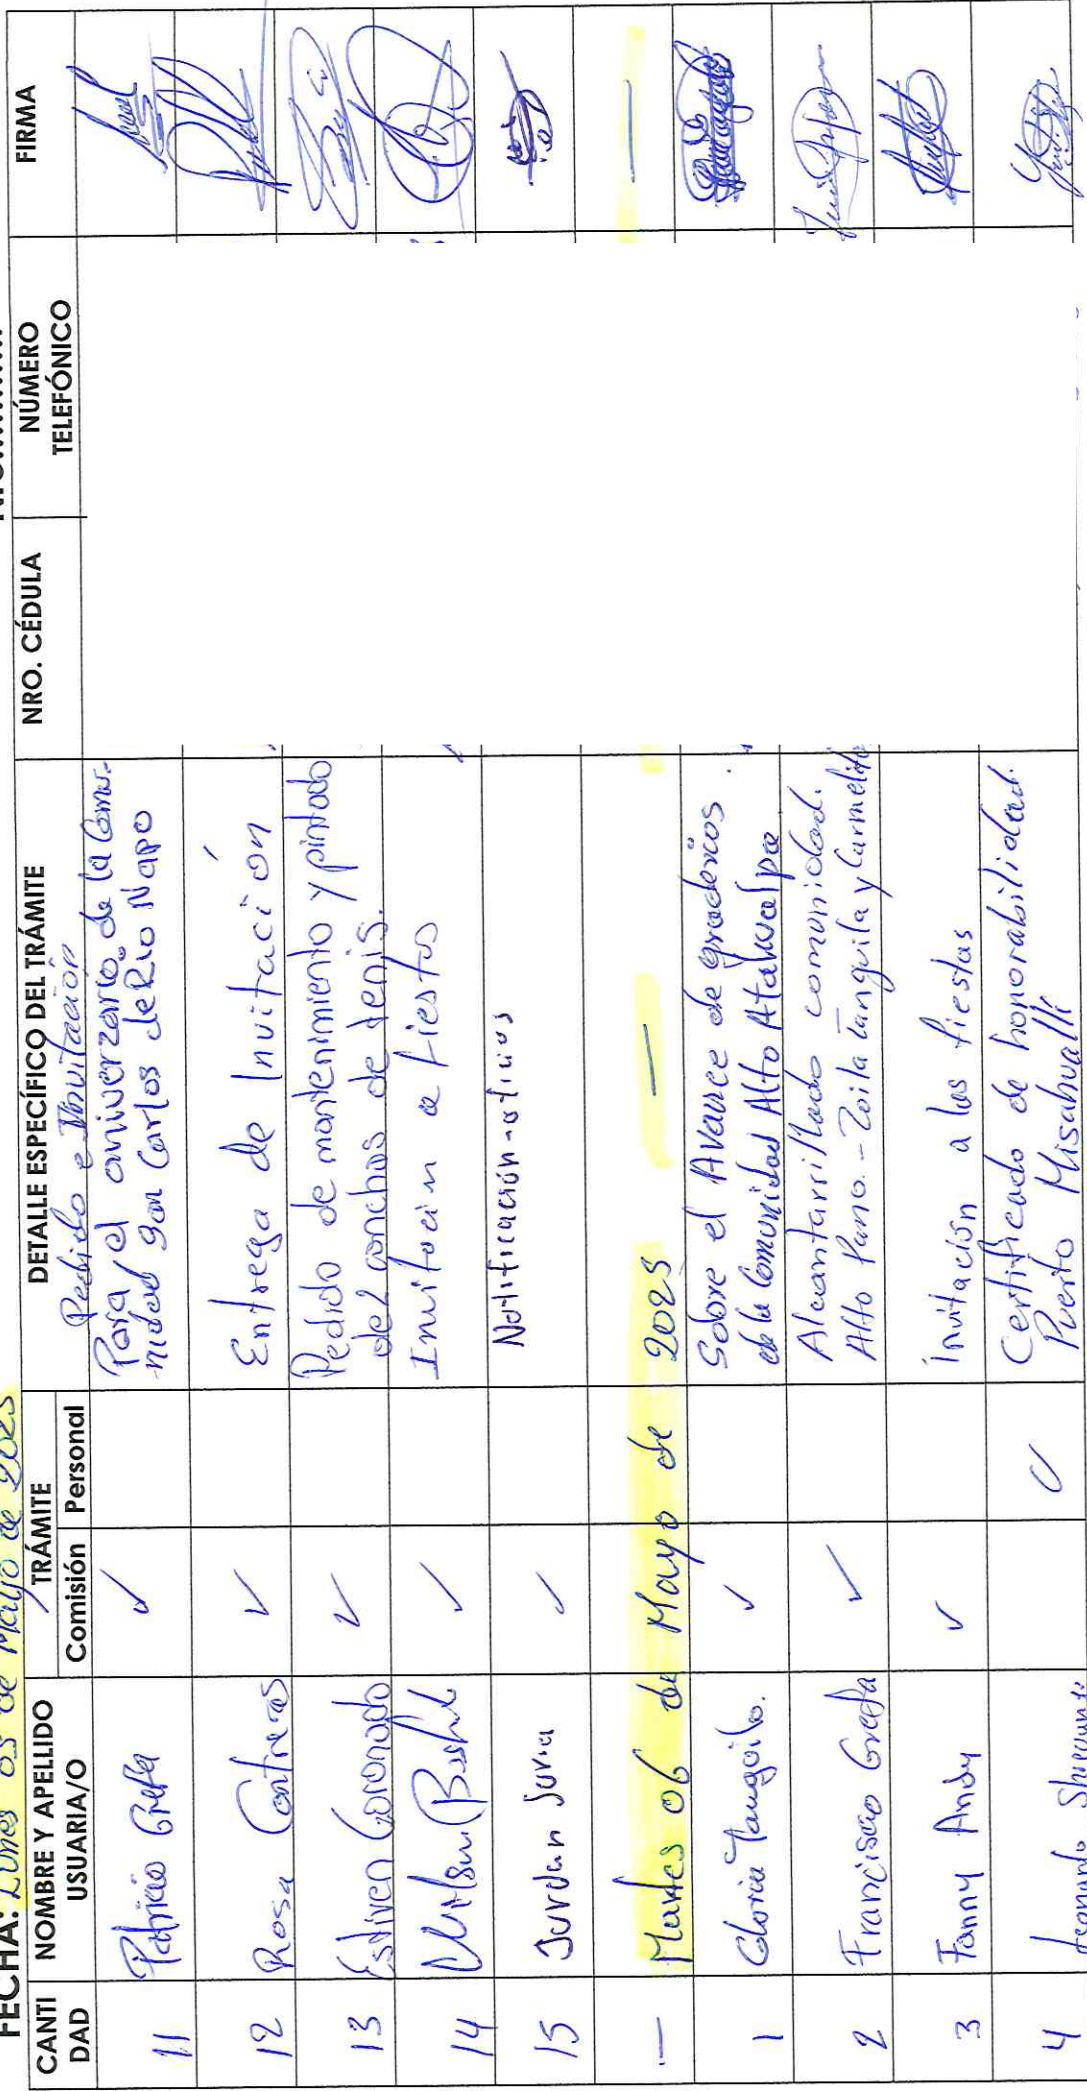 FECHA: Lunes 05 de Mayo de 2025
CANTI DAD
NOMBRE Y APELLIDO USUARIA/O
TRÁMITE
Comisión
Personal
DETALLE ESPECÍFICO DEL TRÁMITE
NRO. CÉDULA
NÚMERO TELEFÓNICO
FIRMA
11 Patricio Grefa ✓ Pedido e Invitación
Para el aniverzario de la Comu-
nidad San Carlos de Rio Napo
12 Rosa Contreras ✓ Entrega de Invitación
13 Estiven Coronado ✓ Pedido de mantenimiento y pintado
de 2 canchas de tenis.
14 ✓ Invitacion a fiestas
15 ✓ Notificación-oficios
— Martes 06 de Mayo de 2025 — —
1 Gloria Tanguila. ✓ Sobre el Avance de graderios
de la Comunidad Alto Atahualpa
2 Francisco Grefa ✓ Alcantarillado comunidad.
Alto Pano. - Zoila Tanguila y Carmelita
3 Fanny Andy ✓ Invitación a las fiestas
4 Leonardo ✓ Certificado de honorabilidad.
Puerto Misahuallí